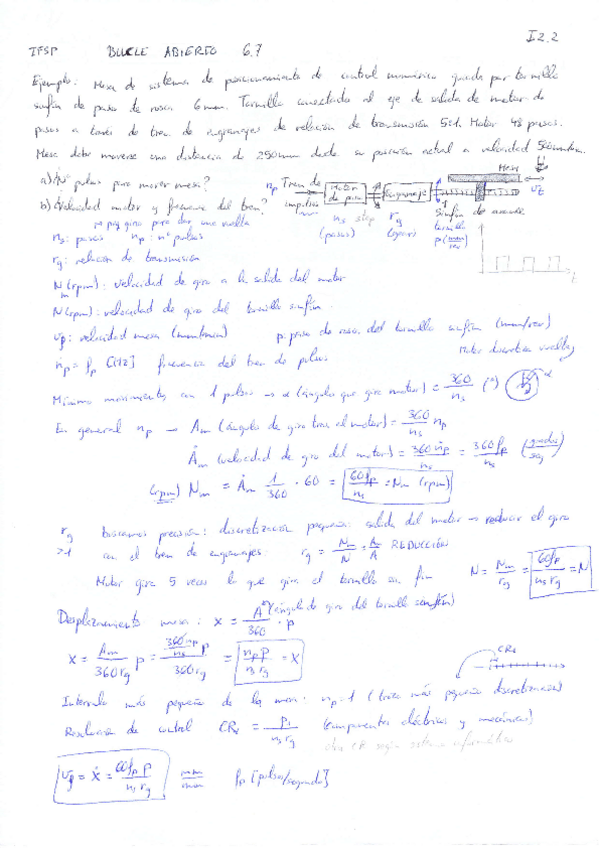 I2.2
IFSP BUCLE ABIERTO 6.7
Ejemplo: Mesa de sistema de posicionamiento de control numérico guiada por tornillo
sinfín de paso de rosca 6mm. Tornillo conectado al eje de salida de motor de
pasos a través de tren de engranajes de relación de transmisión 5:1. Motor 48 pasos.
Mesa debe moverse una distancia de 250mm desde su posición actual a velocidad
a) Nº pulsos para mover mesa?
b) Velocidad motor y frecuencia del tren?
np Tren de impulsos
Motor de pasos
Engranajes
Mesa
ns step (pasos)
rg (giros)
tornillo p (mm/rev)
vt
ns: pasos np: nº pulsos
rg: relación de transmisión
Nm(rpm): velocidad de giro a la salida del motor
N(rpm): velocidad de giro del tornillo sinfín
vp: velocidad mesa (mm/min) p: paso de rosca del tornillo sinfín (mm/rev)
ṅp = fp [Hz] frecuencia del tren de pulsos
Motor discretiza vueltas
Mínimo movimiento con 1 pulso → α (ángulo que gira motor) = 360/ns (º) α
En general np → Am (ángulo de giro tras el motor) = 360/ns np
Ȧm (velocidad de giro del motor) = 360ṅp/ns = 360fp/ns (grados/seg)
(rpm) Nm = Ȧm 1/360 · 60 = 60fp/ns = Nm (rpm)
rg buscamos precisión: discretización pequeña: salida del motor → reducir el giro
>1 con el tren de engranajes: rg = Nm/N = Am/A REDUCCIÓN
Motor gira 5 veces lo que gira el tornillo sin fin N = Nm/rg = 60fp/ns rg = N
Desplazamiento mesa: x = A/360 · p (ángulo de giro del tornillo sinfín)
x = Am/360rg p = 360np/ns/360rg p = np p/ns rg = x
CRx
Intervalo más pequeño de la mesa: np=1 (traza más pequeña discretización)
Resolución de control CRx = p/ns rg (componentes eléctricas y mecánicas)
otra CR según sistema informático
vp = ẋ = 60fp p/ns rg mm/min fp [pulsos/segundo]